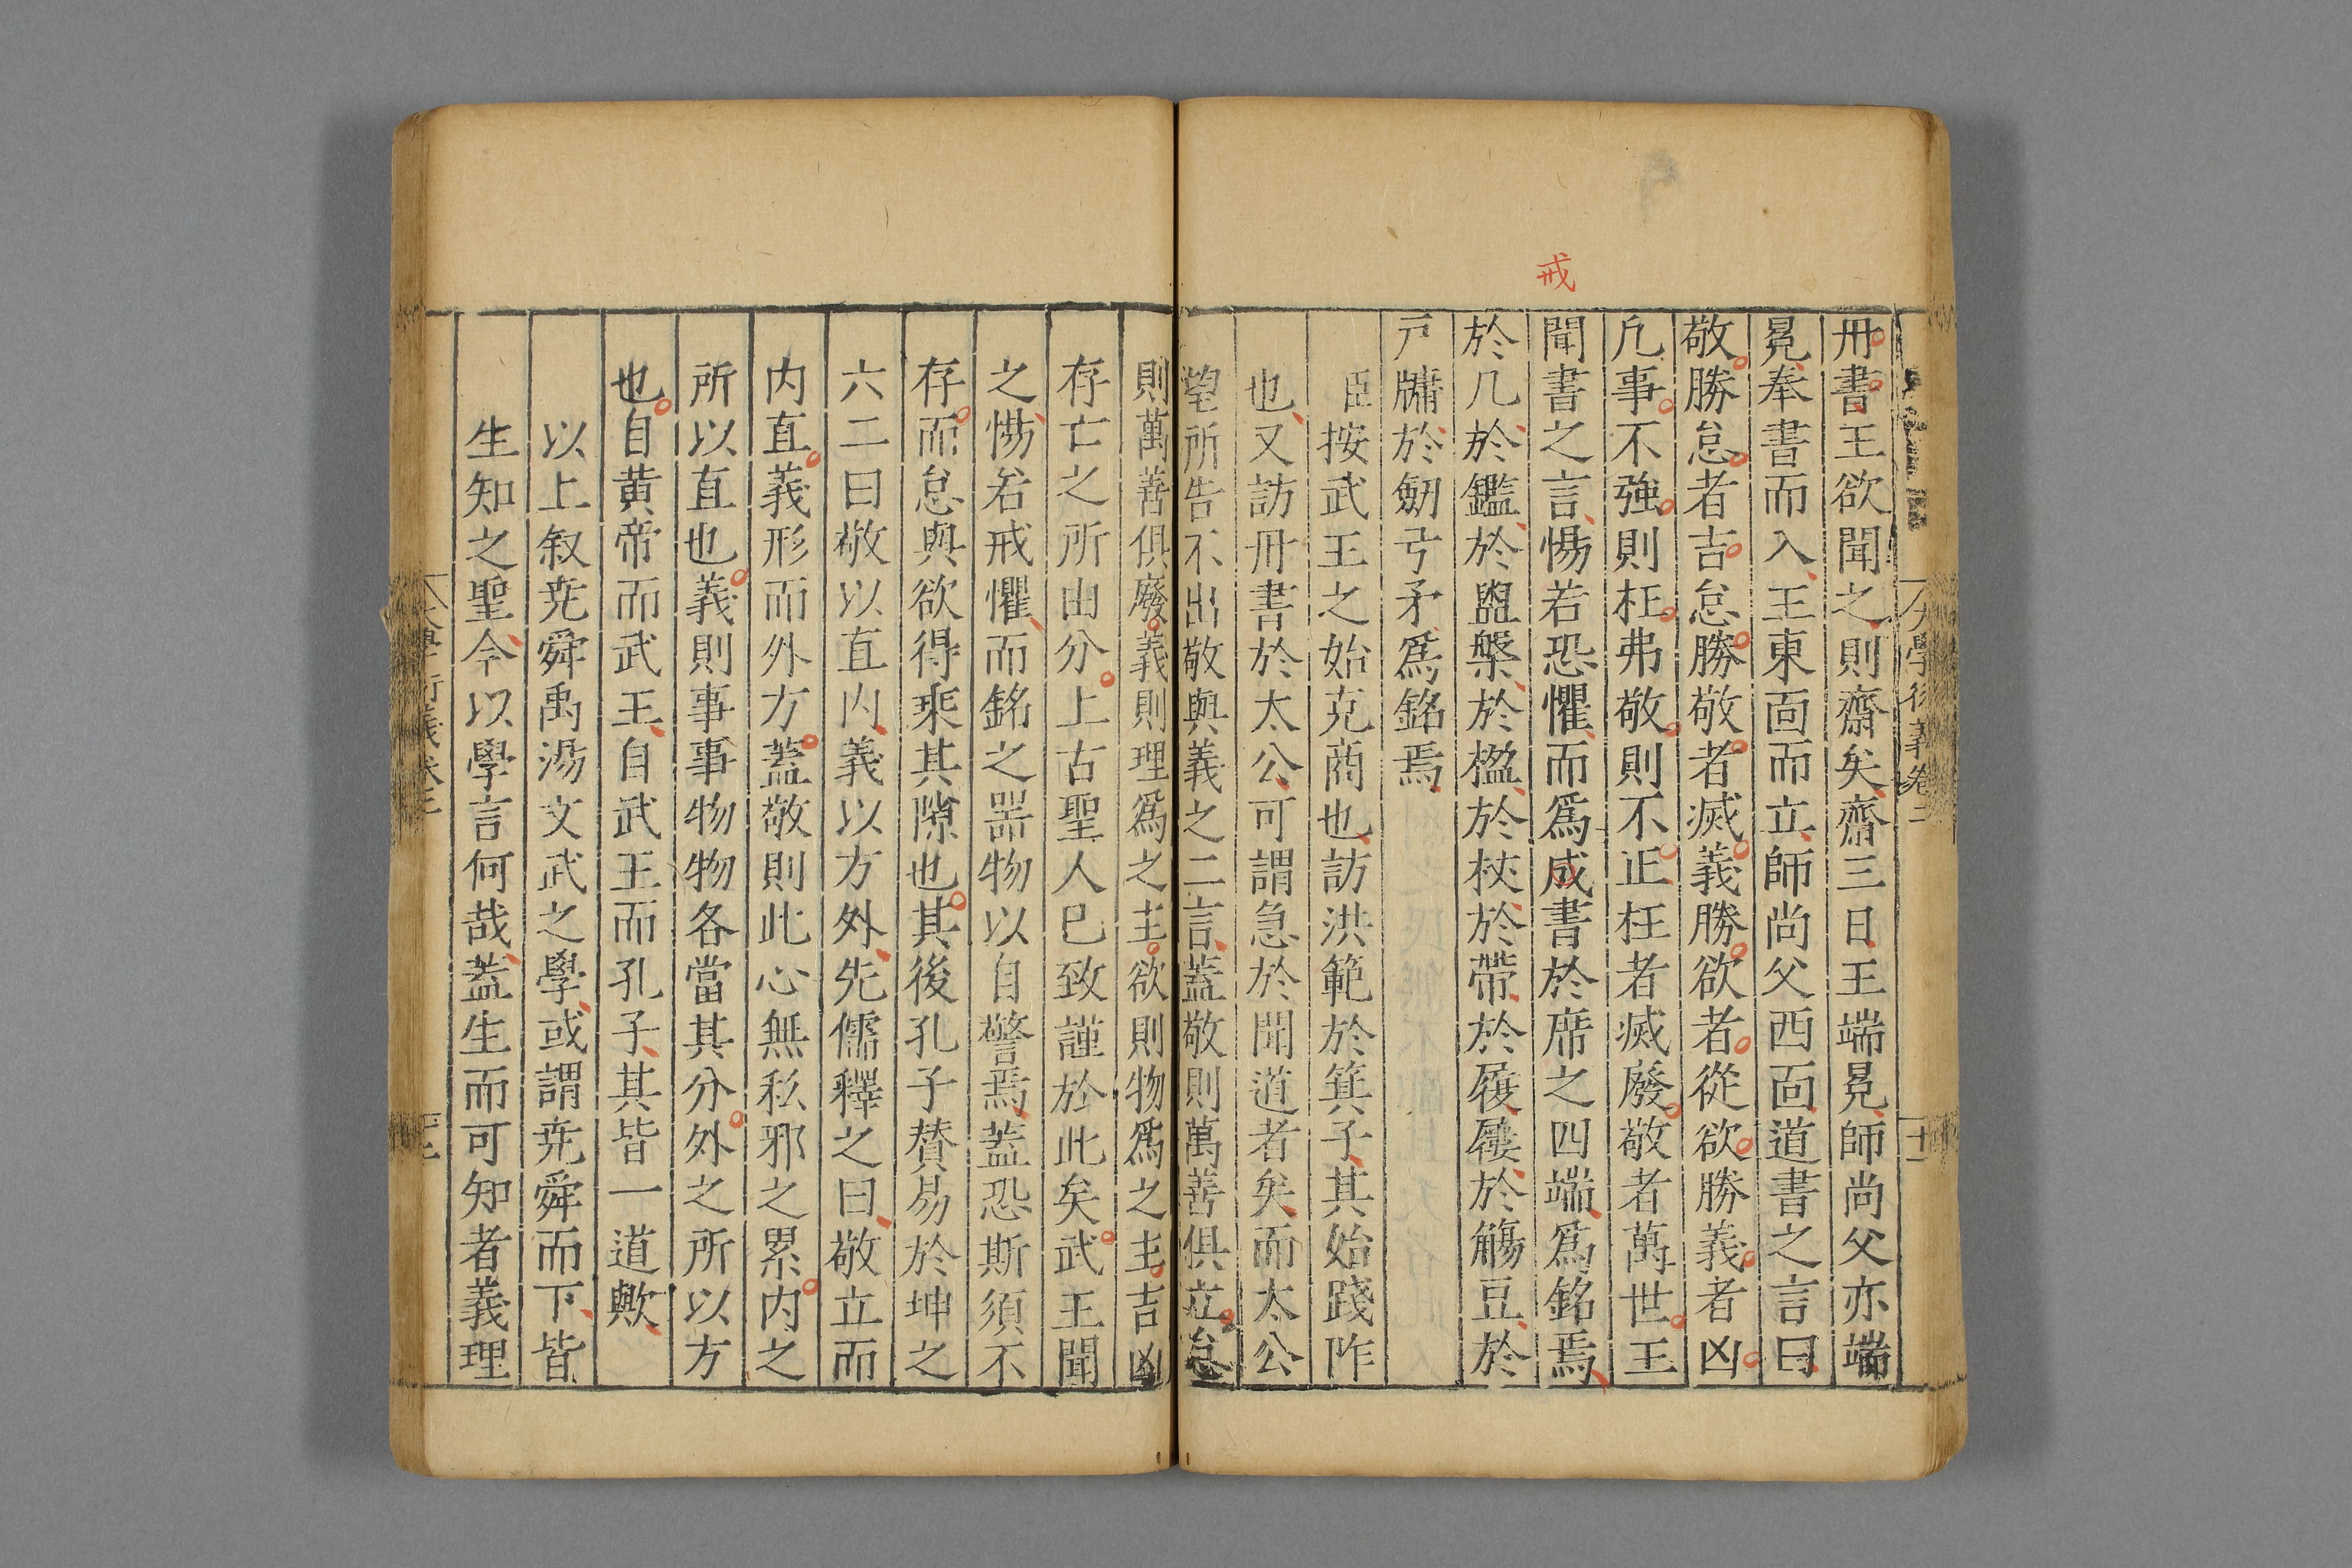 戒
冊書王欲聞之則齋矣齋三日王端冕師尚父亦端
冕奉書而入王東面而立師尚父西面道書之言曰
敬勝怠者吉怠勝敬者滅義勝欲者從欲勝義者凶
凢事不強則枉弗敬則不正枉者滅廢敬者萬世王
聞書之言惕若恐懼而爲成書於席之四端爲銘焉
於几於鑑於盥槃於楹於杖於帶於履屨於觴豆於
戸牗於劒弓矛爲銘焉
臣按武王之始克商也訪洪範於箕子其始踐阼
也又訪冊書於太公可謂急於聞道者矣而太公
望所告不出敬與義之二言蓋敬則萬善俱立怠
則萬善俱廢義則理爲之主欲則物爲之主吉凶
存亡之所由分上古聖人已致謹於此矣武王聞
之惕若戒懼而銘之器物以自警焉蓋恐斯須不
存而怠與欲得乘其隙也其後孔子賛易於坤之
六二曰敬以直内義以方外先儒釋之曰敬立而
内直義形而外方蓋敬則此心無私邪之累内之
所以直也義則事事物物各當其分外之所以方
也自黄帝而武王自武王而孔子其皆一道歟
以上叙尭舜禹湯文武之學或謂尭舜而下皆
生知之聖今以學言何哉蓋生而可知者義理